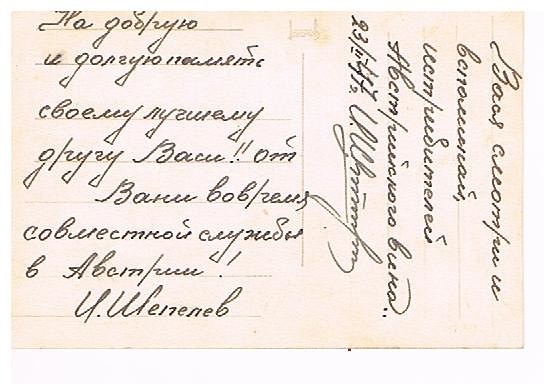 На добрую
и долгую память
своему лучшему
другу Васи!! от
Вани во время
совместной службы
в Австрии!
И. Шепелев
Вася смотри и
вспоминай,
истребителей
Австрийского вина..
23/III 47 г.